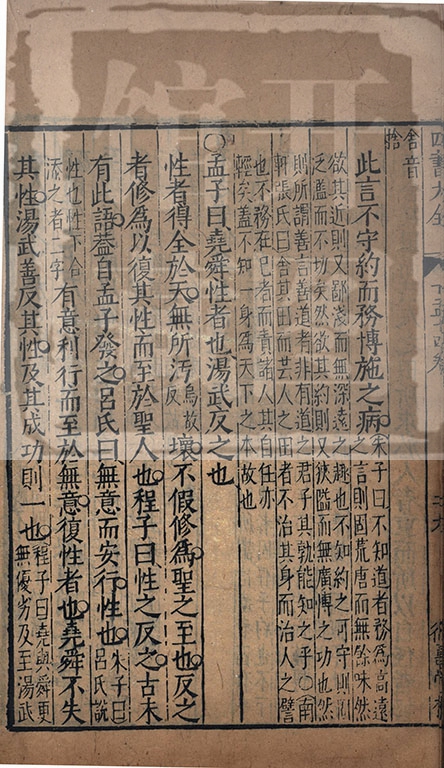 舍音
捨
此言不守約而務博施之病
朱子曰不知道者務為高遠
之言則固荒唐而無餘味然
欲其近則又鄙淺而無深遠之趣也不知約之可守則
泛濫而不切矣然欲其約則又狹隘而無廣博之功也然
則所謂善言善道者非有道之君子其孰能知之乎○南
軒張氏曰舍其田而芸人之田者不治其身而治人之譬
也不務在己者而責諸人其自任亦
輕矣蓋不知一身為天下之本故也
○孟子曰堯舜性者也湯武反之也
性者得全於天無所汙
烏故
反
壞不假修為聖之至也反之
者修為以復其性而至於聖人也程子曰性之反之古未
有此語蓋自孟子發之呂氏曰無意而安行性也
朱子曰
呂氏說
性也性下合
添之者二字
有意利行而至於無意復性者也堯舜不失
其性湯武善反其性及其成功則一也
程子曰堯與舜更
無優劣及至湯武
四書大全